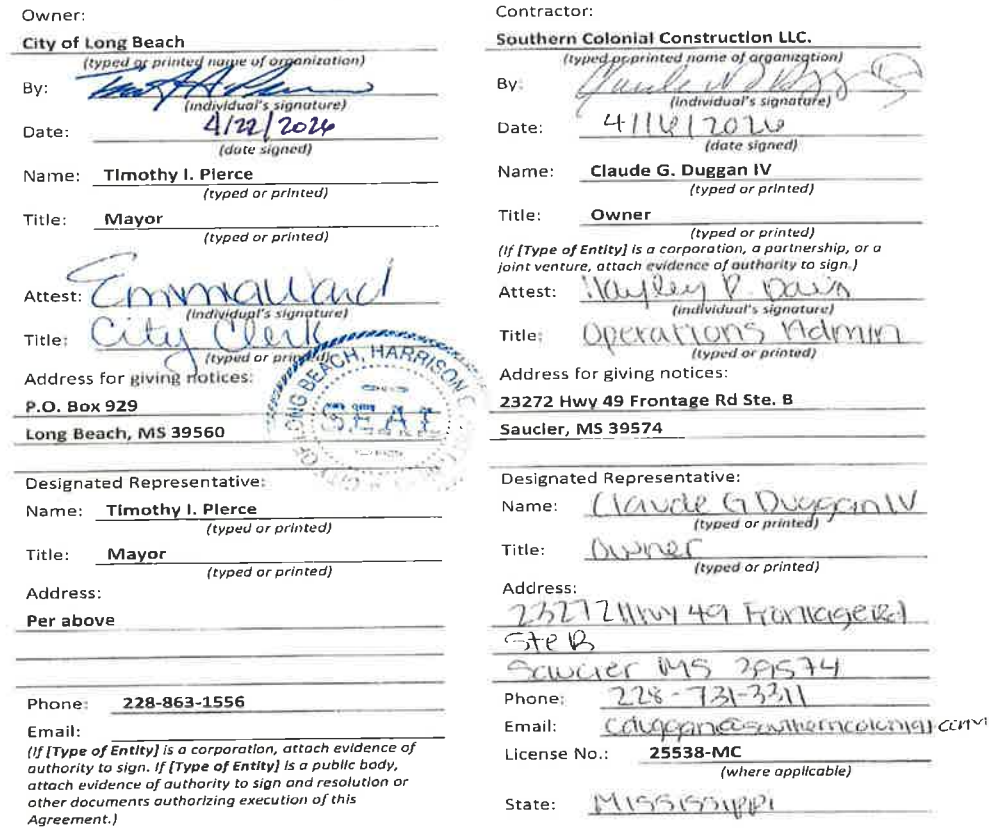 Owner:
City of Long Beach
(typed or printed name of organization)
By:
(individual's signature)
Date: 4/22/2026
(date signed)
Name: Timothy I. Pierce
(typed or printed)
Title: Mayor
(typed or printed)
Attest: Emma Ward
(individual's signature)
Title: City Clerk
(typed or printed)
Address for giving notices:
P.O. Box 929
Long Beach, MS 39560
LONG BEACH, HARRISON
SEAL
CITY OF
Designated Representative:
Name: Timothy I. Pierce
(typed or printed)
Title: Mayor
(typed or printed)
Address:
Per above
Phone: 228-863-1556
Email:
(If [Type of Entity] is a corporation, attach evidence of
authority to sign. If [Type of Entity] is a public body,
attach evidence of authority to sign and resolution or
other documents authorizing execution of this
Agreement.)
Contractor:
Southern Colonial Construction LLC.
(typed or printed name of organization)
By:
(individual's signature)
Date: 4/16/2026
(date signed)
Name: Claude G. Duggan IV
(typed or printed)
Title: Owner
(typed or printed)
(If [Type of Entity] is a corporation, a partnership, or a
joint venture, attach evidence of authority to sign.)
Attest: Hayley P. Davis
(individual's signature)
Title: Operations Admin
(typed or printed)
Address for giving notices:
23272 Hwy 49 Frontage Rd Ste. B
Saucier, MS 39574
Designated Representative:
Name: Claude G Duggan IV
(typed or printed)
Title: Owner
(typed or printed)
Address:
23272 Hwy 49 Frontage Rd
Ste B
Saucier MS 39574
Phone: 228-731-3311
Email: cduggan@southerncolonial.com
License No.: 25538-MC
(where applicable)
State: Mississippi